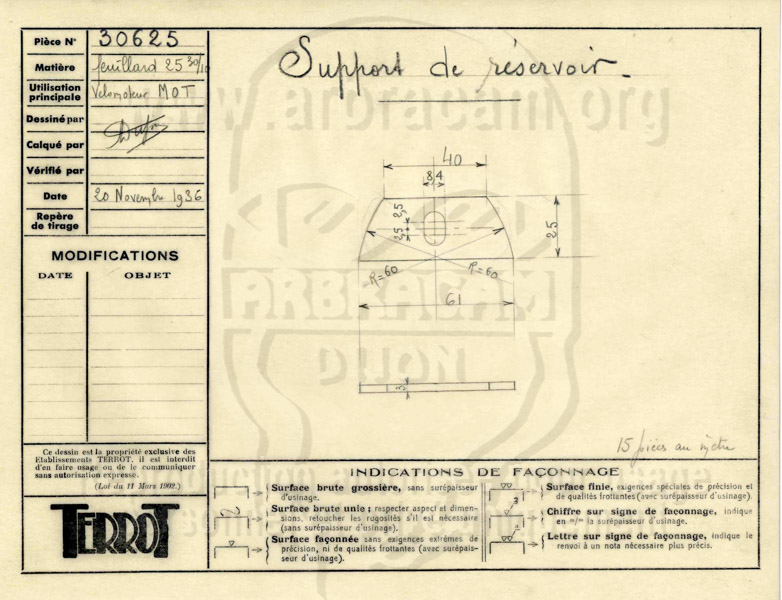 Pièce N° 30625
Matière feuillard 25 30/10
Utilisation principale Velomoteur MOT
Dessiné par
Calqué par
Vérifié par
Date 20 Novembre 1936
Repère de tirage
MODIFICATIONS
DATE OBJET
Ce dessin est la propriété exclusive des
Etablissements TERROT, il est interdit
d'en faire usage ou de le communiquer
sans autorisation expresse.
(Loi du 11 Mars 1902.)
TERROT
Support de réservoir.
40
8,4
2,5
2,5
25
R=60
R=60
61
3
15 pièces au mètre
www.arbracam.org
ARBRACAM
DIJON
INDICATIONS DE FAÇONNAGE
Surface brute grossière, sans surépaisseur
d'usinage.
Surface brute unie ; respecter aspect et dimen-
sions, retoucher les rugosités s'il est nécessaire
(sans surépaisseur d'usinage).
Surface façonnée sans exigences extrêmes de
précision, ni de qualités frottantes (avec surépais-
seur d'usinage).
3
Surface finie, exigences spéciales de précision et
de qualités frottantes (avec surépaisseur d'usinage).
Chiffre sur signe de façonnage, indique
en m/m la surépaisseur d'usinage.
Lettre sur signe de façonnage, indique le
renvoi à un nota nécessaire plus précis.